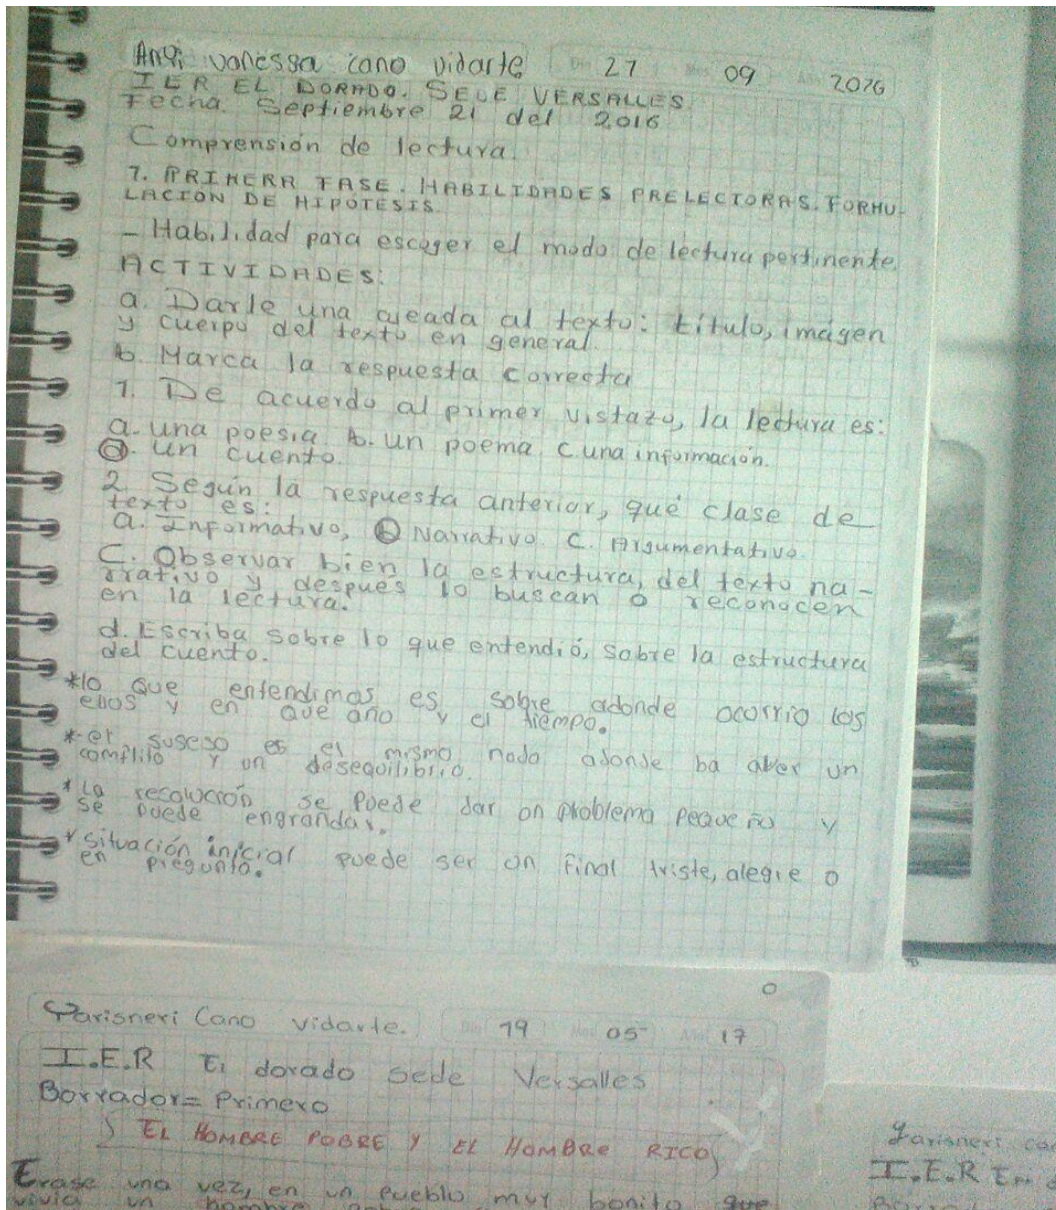 Angi vanessa cano vidarte 27 09 2016
IER EL DORADO. SEDE VERSALLES
Fecha. Septiembre 21 del 2016
Comprensión de lectura.
1. PRIMERA FASE. HABILIDADES PRELECTORAS. FORMU-
LACIÓN DE HIPOTESIS.
- Habilidad para escoger el modo de lectura pertinente.
ACTIVIDADES:
a. Darle una ojeada al texto: título, imágen
y cuerpo del texto en general.
b. Marca la respuesta correcta
1. De acuerdo al primer vistazo, la lectura es:
a. una poesia. b. un poema. c una información.
d. un cuento.
2. Según la respuesta anterior, qué clase de
texto es:
a. Informativo, b Narrativo. C. Argumentativo.
C. Observar bien la estructura, del texto na-
rrativo y después lo buscan o reconocen
en la lectura.
d. Escriba sobre lo que entendió, sobre la estructura
del cuento.
*lo que entendimos es sobre adonde ocorrio los
ellos y en que año y el tiempo.
*- el suseso es el mismo nodo adonde ba aber un
comflito y un desequilibrio.
* La recolución se puede dar on problema pequeño y
se puede engrandar.
* situación inicial puede ser on final triste, alegre o
en pregunta.
Yarisneri Cano vidarte. 19 05 17
I.E.R El dorado sede Versalles
Borrador = Primero
EL HOMBRE POBRE Y EL HOMBRE RICO
Erase una vez, en un pueblo muy bonito que
vivia un hombre
Yarisneri
I.E.R